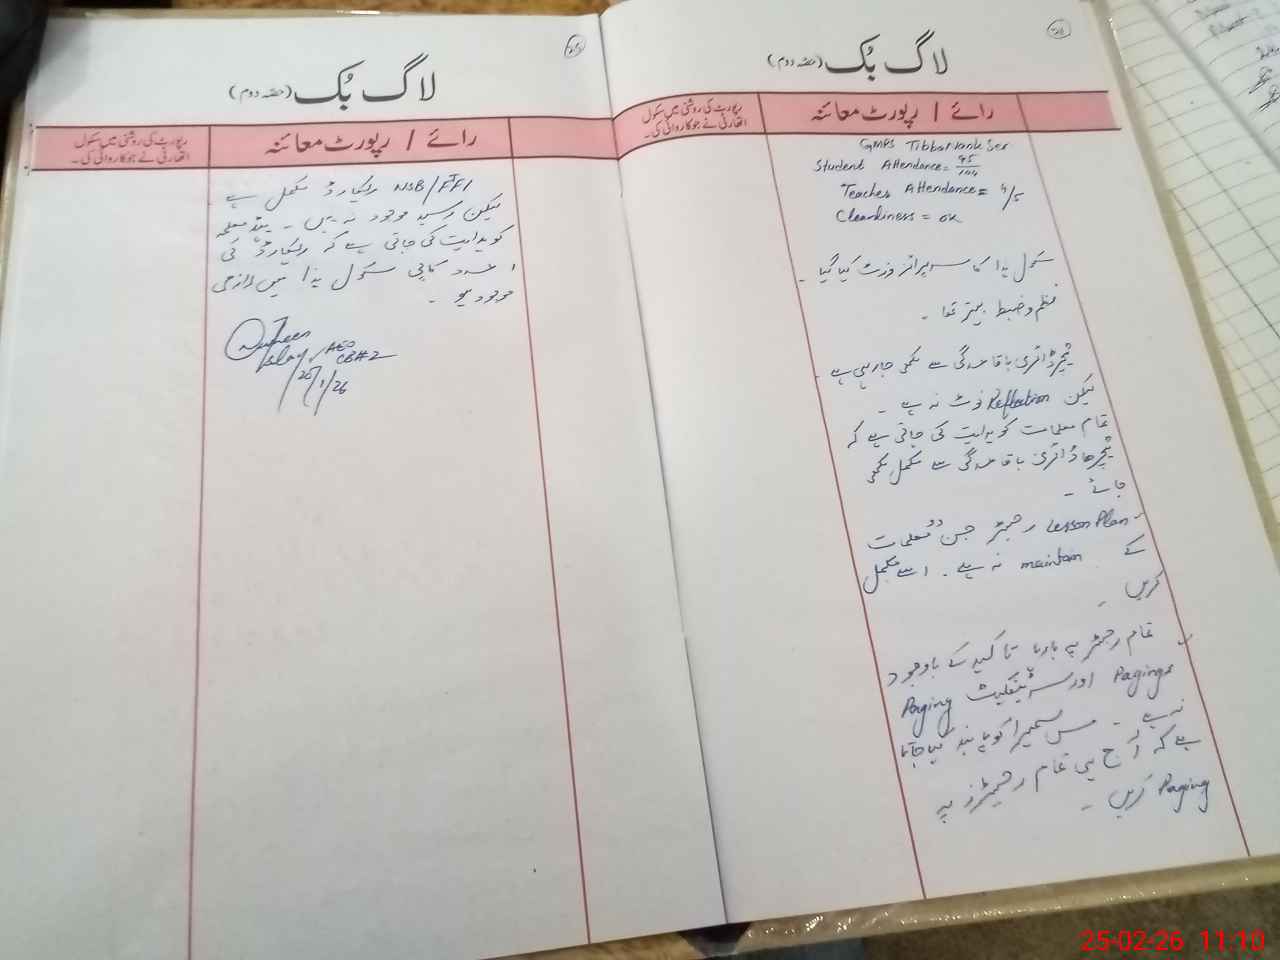 24
لاگ بُک (حصہ دوم)
رائے / رپورٹ معائنہ
رپورٹ کی روشنی میں سکول
اتھارٹی نے جو کاروائی کی۔
GMPS Tibba
Student Attendance = 95/104
Teacher Attendance = 4/5
Cleanliness = ok
سکول ہذا کا سرپرائز وزٹ کیا گیا۔
نظم و ضبط بہتر تھا۔
ٹیچر ڈائری باقاعدگی سے لکھی جا رہی ہے۔
لیکن Reflection نوٹ نہ ہے۔
تمام معلمات کو ہدایت کی جاتی ہے کہ
ٹیچرز ڈائری باقاعدگی سے مکمل لکھی
جائے۔
Lesson Plan رجسٹر جن دو معلمات
کے maintain نہ ہے۔ اسے مکمل
کریں۔
تمام رجسٹر پہ بارہا تاکید کے باوجود
Paging اور سرٹیفکیٹ Paging
نہ ہے۔ مس سمیرا کو پابند کیا جاتا
ہے کہ آج ہی تمام رجسٹرز پہ
Paging کریں۔
25
لاگ بُک (حصہ دوم)
رائے / رپورٹ معائنہ
رپورٹ کی روشنی میں سکول
اتھارٹی نے جو کاروائی کی۔
NSB/FTF ریکارڈ مکمل ہے
لیکن رسید موجود نہ ہیں۔ ہیڈ معلمہ
کو ہدایت کی جاتی ہے کہ ریکارڈ کی
ا عدد کاپی سکول ہذا میں لازمی
موجود ہو۔
AEO
CB#2
25-02-26 11:10